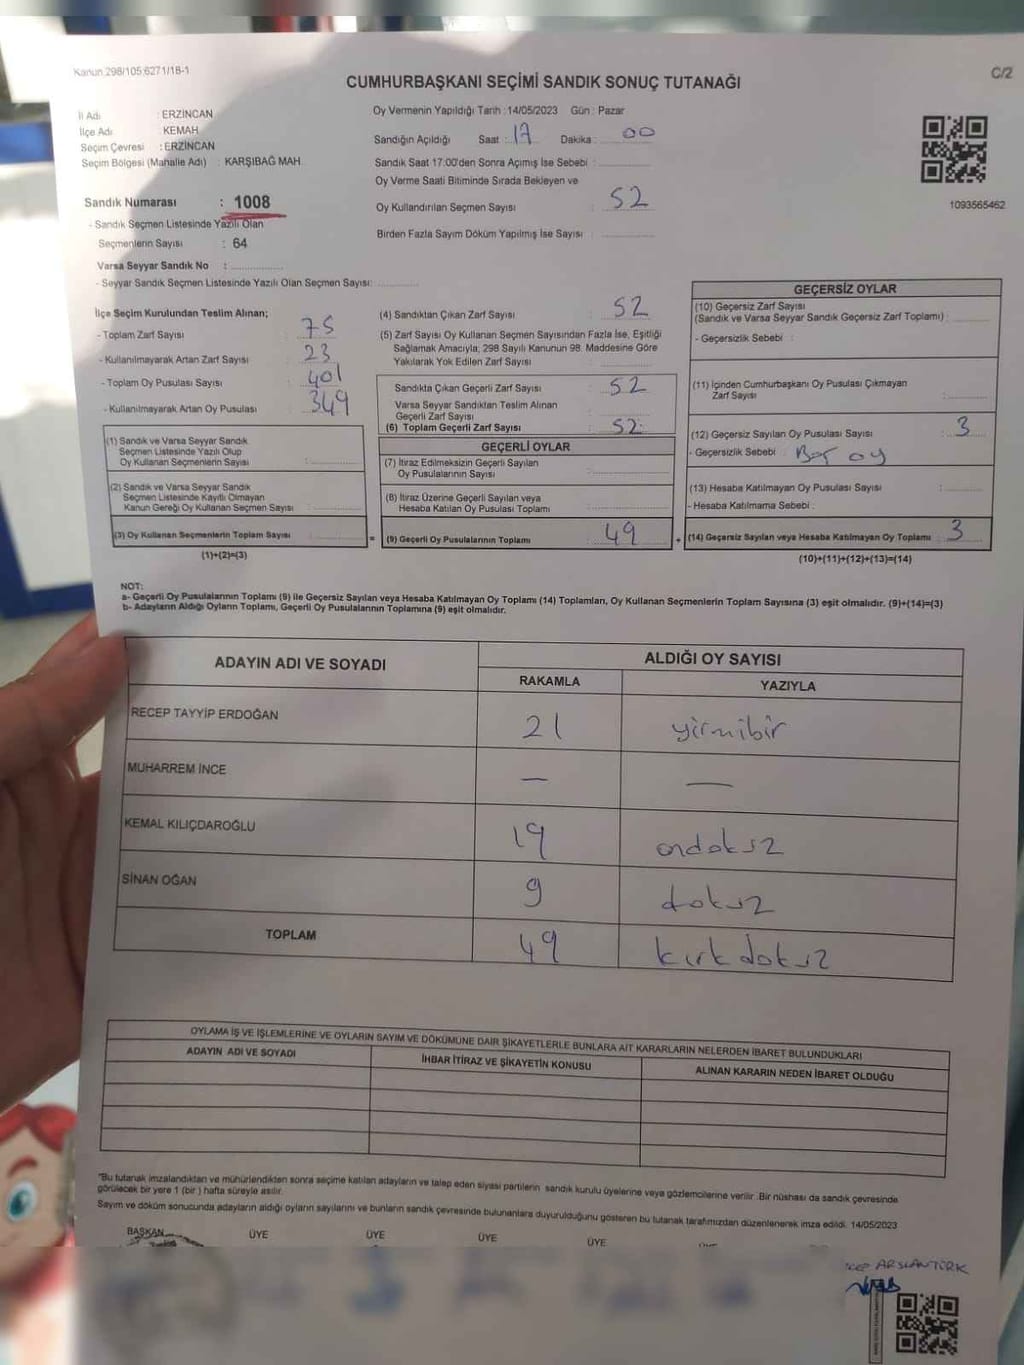 Kanun 298/105;6271/18-1
C/2
CUMHURBAŞKANI SEÇİMİ SANDIK SONUÇ TUTANAĞI
İl Adı : ERZİNCAN
İlçe Adı : KEMAH
Seçim Çevresi : ERZİNCAN
Seçim Bölgesi (Mahalle Adı) : KARŞIBAĞ MAH.
Sandık Numarası : 1008
- Sandık Seçmen Listesinde Yazılı Olan
Seçmenlerin Sayısı : 64
Varsa Seyyar Sandık No :
- Seyyar Sandık Seçmen Listesinde Yazılı Olan Seçmen Sayısı:
Oy Vermenin Yapıldığı Tarih : 14/05/2023 Gün : Pazar
Sandığın Açıldığı Saat : 17 Dakika : 00
Sandık Saat 17:00'den Sonra Açımış İse Sebebi :
Oy Verme Saati Bitiminde Sırada Bekleyen ve
Oy Kullandırılan Seçmen Sayısı : 52
Birden Fazla Sayım Döküm Yapılmış İse Sayısı :
1093565462
İlçe Seçim Kurulundan Teslim Alınan;
- Toplam Zarf Sayısı : 75
- Kullanılmayarak Artan Zarf Sayısı : 23
- Toplam Oy Pusulası Sayısı : 401
- Kullanılmayarak Artan Oy Pusulası : 349
(1) Sandık ve Varsa Seyyar Sandık
Seçmen Listesinde Yazılı Olup
Oy Kullanan Seçmenlerin Sayısı :
(2) Sandık ve Varsa Seyyar Sandık
Seçmen Listesinde Kayıtlı Olmayan
Kanun Gereği Oy Kullanan Seçmen Sayısı :
(3) Oy Kullanan Seçmenlerin Toplam Sayısı :
(1)+(2)=(3)
(4) Sandıktan Çıkan Zarf Sayısı : 52
(5) Zarf Sayısı Oy Kullanan Seçmen Sayısından Fazla İse, Eşitliği
Sağlamak Amacıyla; 298 Sayılı Kanunun 98. Maddesine Göre
Yakılarak Yok Edilen Zarf Sayısı :
Sandıkta Çıkan Geçerli Zarf Sayısı : 52
Varsa Seyyar Sandıktan Teslim Alınan
Geçerli Zarf Sayısı :
(6) Toplam Geçerli Zarf Sayısı : 52
GEÇERLİ OYLAR
(7) İtiraz Edilmeksizin Geçerli Sayılan
Oy Pusulalarının Sayısı :
(8) İtiraz Üzerine Geçerli Sayılan veya
Hesaba Katılan Oy Pusulası Toplamı :
= (9) Geçerli Oy Pusulalarının Toplamı : 49
GEÇERSİZ OYLAR
(10) Geçersiz Zarf Sayısı
(Sandık ve Varsa Seyyar Sandık Geçersiz Zarf Toplamı) :
- Geçersizlik Sebebi :
(11) İçinden Cumhurbaşkanı Oy Pusulası Çıkmayan
Zarf Sayısı :
(12) Geçersiz Sayılan Oy Pusulası Sayısı : 3
- Geçersizlik Sebebi : Boş oy
(13) Hesaba Katılmayan Oy Pusulası Sayısı :
- Hesaba Katılmama Sebebi :
+ (14) Geçersiz Sayılan veya Hesaba Katılmayan Oy Toplamı : 3
(10)+(11)+(12)+(13)=(14)
NOT:
a- Geçerli Oy Pusulalarının Toplamı (9) ile Geçersiz Sayılan veya Hesaba Katılmayan Oy Toplamı (14) Toplamları, Oy Kullanan Seçmenlerin Toplam Sayısına (3) eşit olmalıdır. (9)+(14)=(3)
b- Adayların Aldığı Oyların Toplamı, Geçerli Oy Pusulalarının Toplamına (9) eşit olmalıdır.
ADAYIN ADI VE SOYADI
ALDIĞI OY SAYISI
RAKAMLA YAZIYLA
RECEP TAYYİP ERDOĞAN 21 yirmibir
MUHARREM İNCE — —
KEMAL KILIÇDAROĞLU 19 ondokuz
SİNAN OĞAN 9 dokuz
TOPLAM 49 kırkdokuz
OYLAMA İŞ VE İŞLEMLERİNE VE OYLARIN SAYIM VE DÖKÜMÜNE DAİR ŞİKAYETLERLE BUNLARA AİT KARARLARIN NELERDEN İBARET BULUNDUKLARI
ADAYIN ADI VE SOYADI İHBAR İTİRAZ VE ŞİKAYETİN KONUSU ALINAN KARARIN NEDEN İBARET OLDUĞU
"Bu tutanak imzalandıktan ve mühürlendikten sonra seçime katılan adayların ve talep eden siyasi partilerin sandık kurulu üyelerine veya gözlemcilerine verilir. Bir nüshası da sandık çevresinde
görülecek bir yere 1 (bir ) hafta süreyle asılır.
Sayım ve döküm sonucunda adayların aldığı oyların sayılarını ve bunların sandık çevresinde bulunanlara duyurulduğunu gösteren bu tutanak tarafımızdan düzenlenerek imza edildi. 14/05/2023
BAŞKAN ÜYE ÜYE ÜYE ÜYE
ARSLANTÜRK